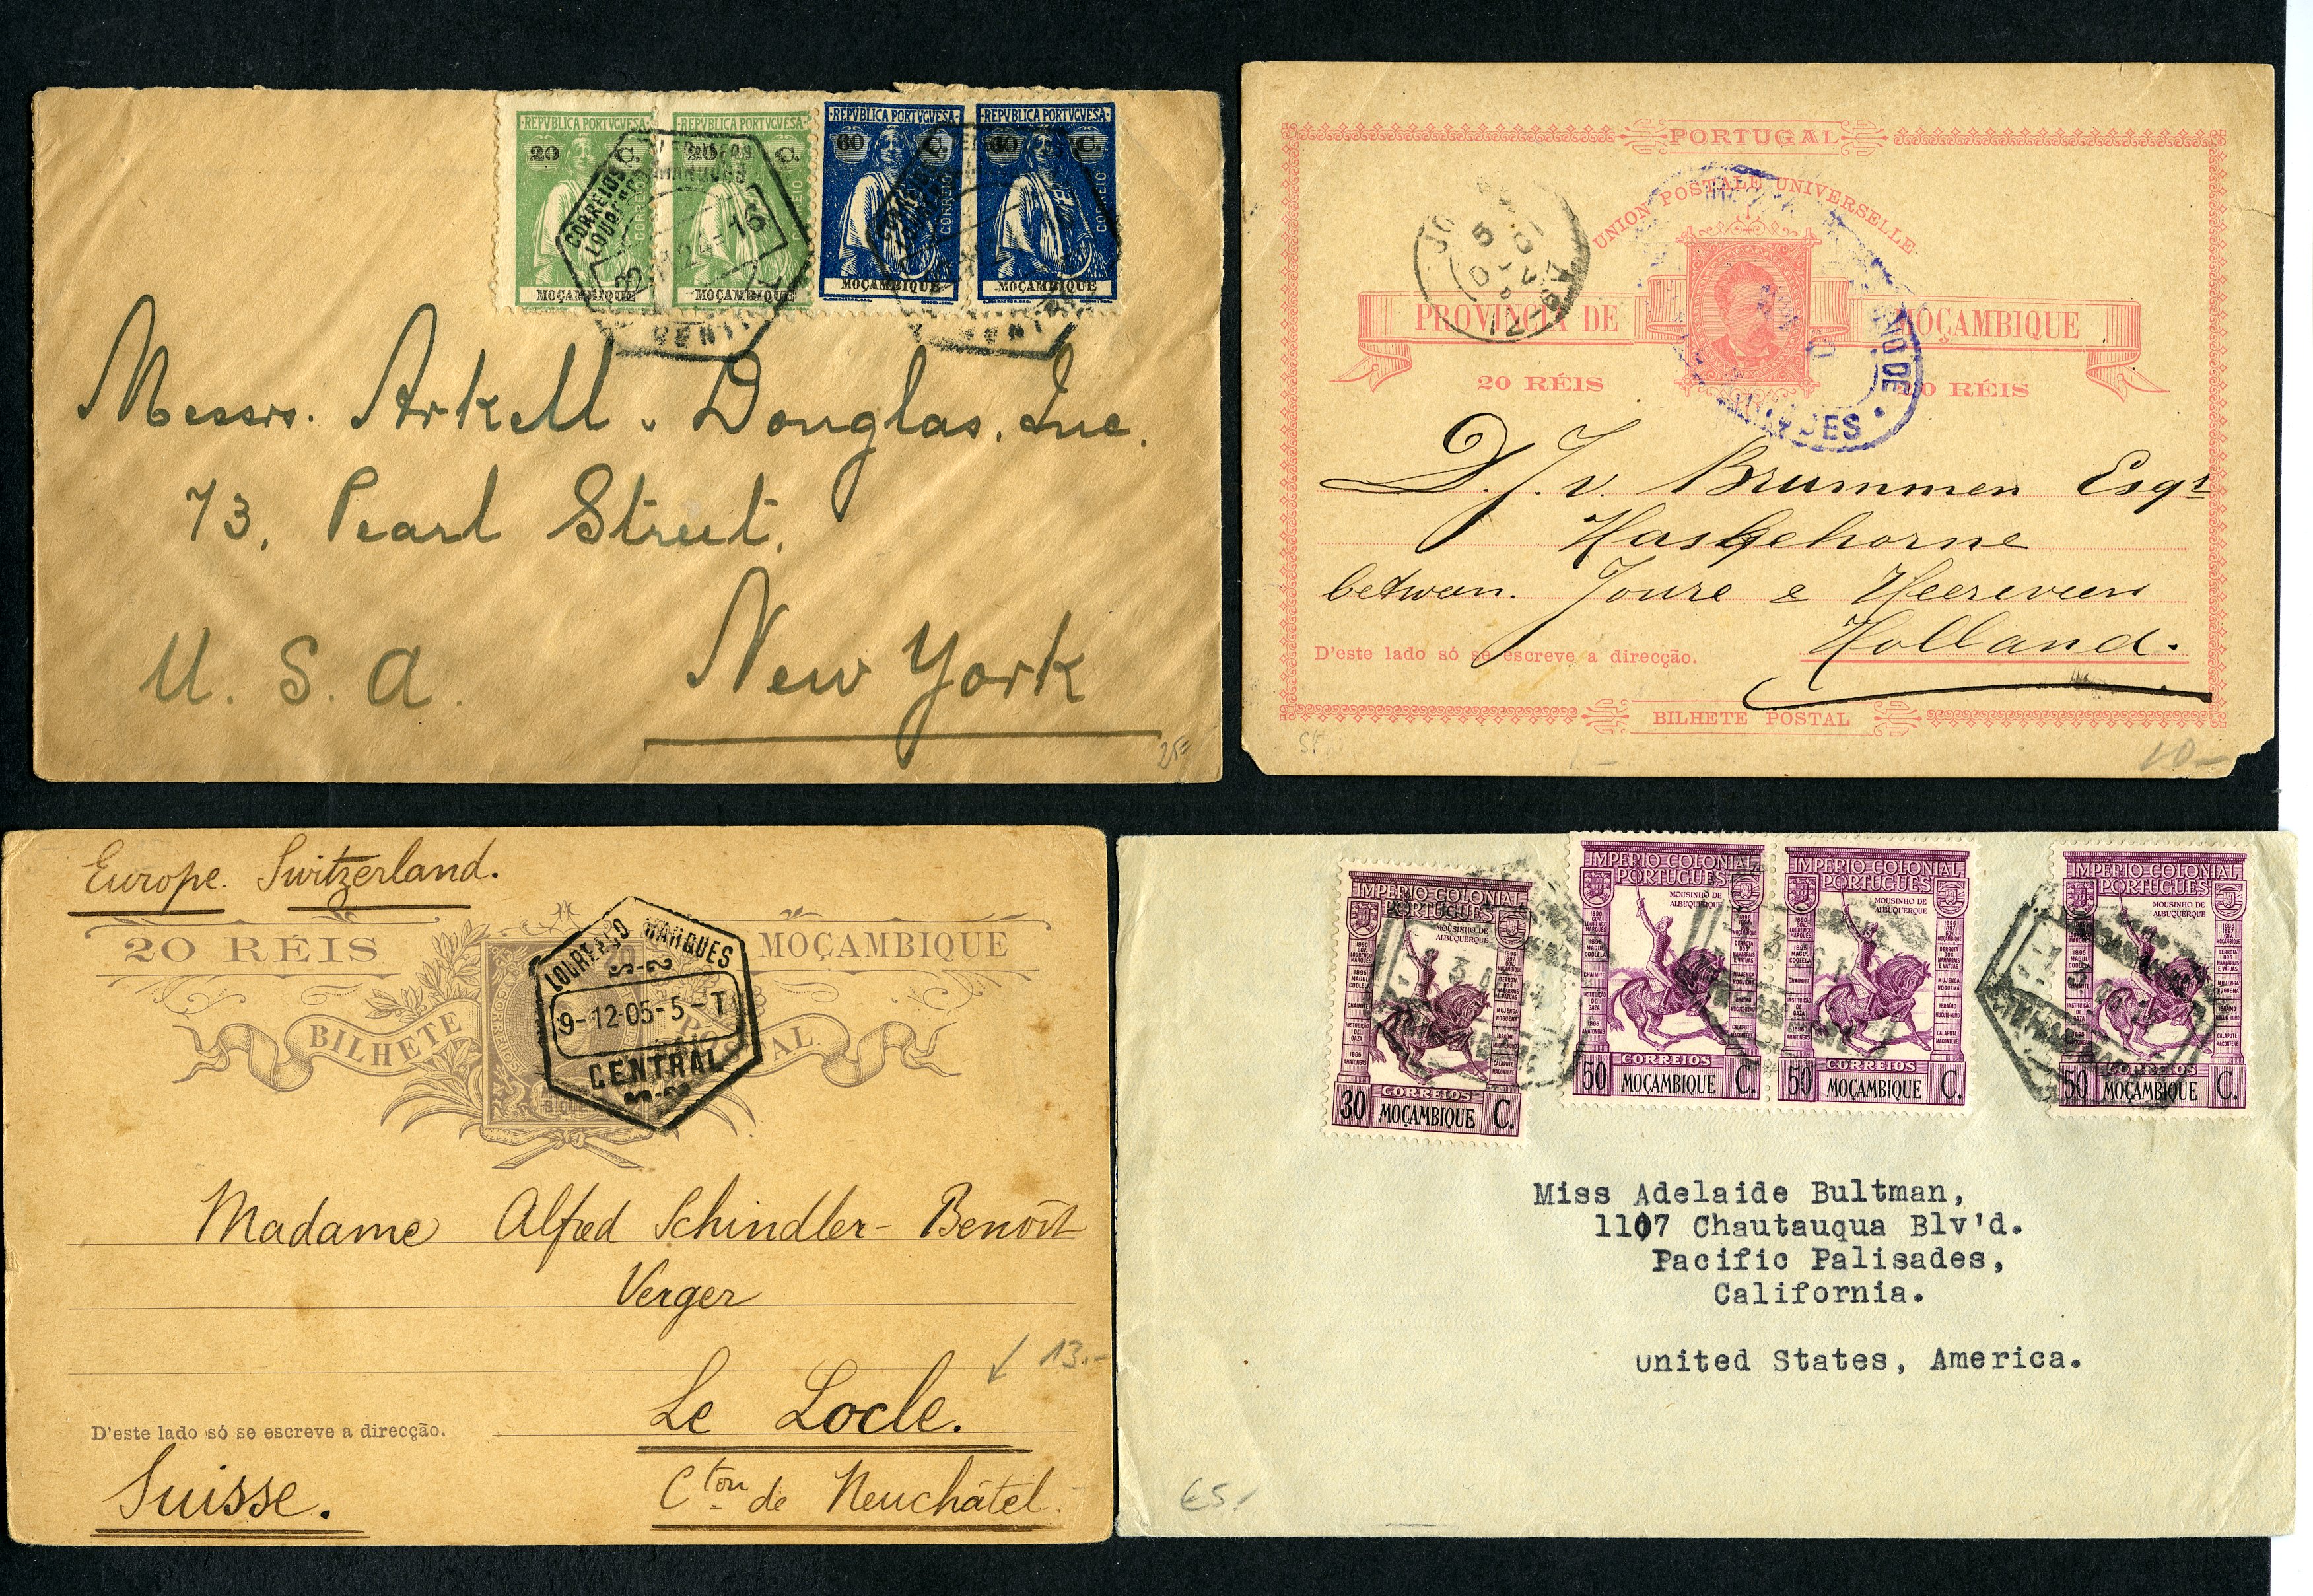 REPVBLICA PORTVGVESA
20 C.
CORREIO
MOÇAMBIQUE
REPVBLICA PORTVGVESA
20 C.
CORREIO
MOÇAMBIQUE
REPVBLICA PORTVGVESA
60 C.
CORREIO
MOÇAMBIQUE
REPVBLICA PORTVGVESA
60 C.
CORREIO
MOÇAMBIQUE
CORREIOS
24-15
Messrs. Arkell & Douglas, Inc.
73, Pearl Street,
New York
U. S. A.
25=
PORTUGAL
UNION POSTALE UNIVERSELLE
PROVINCIA DE MOÇAMBIQUE
20 RÉIS 20 RÉIS
D. J. v. Brummen Esqr
Haskehorne
between. Joure & Heereveen
Holland.
D'este lado só se escreve a direcção.
BILHETE POSTAL
10-
Europe. Switzerland.
20 RÉIS MOÇAMBIQUE
BILHETE POSTAL
CORREIOS
LOURENÇO MARQUES
9-12-05-5-T
CENTRAL
Madame Alfred Schindler-Benoît
Verger
13.-
Le Locle.
D'este lado só se escreve a direcção.
Suisse.
Cton de Neuchâtel.
IMPÉRIO COLONIAL
PORTUGUÊS
MOUSINHO DE
ALBUQUERQUE
CORREIOS
30 MOÇAMBIQUE C.
IMPÉRIO COLONIAL
PORTUGUÊS
MOUSINHO DE
ALBUQUERQUE
CORREIOS
50 MOÇAMBIQUE C.
IMPÉRIO COLONIAL
PORTUGUÊS
MOUSINHO DE
ALBUQUERQUE
CORREIOS
50 MOÇAMBIQUE C.
IMPÉRIO COLONIAL
PORTUGUÊS
MOUSINHO DE
ALBUQUERQUE
CORREIOS
50 MOÇAMBIQUE C.
Miss Adelaide Bultman,
1107 Chautauqua Blv'd.
Pacific Palisades,
California.
United States, America.
€5.-